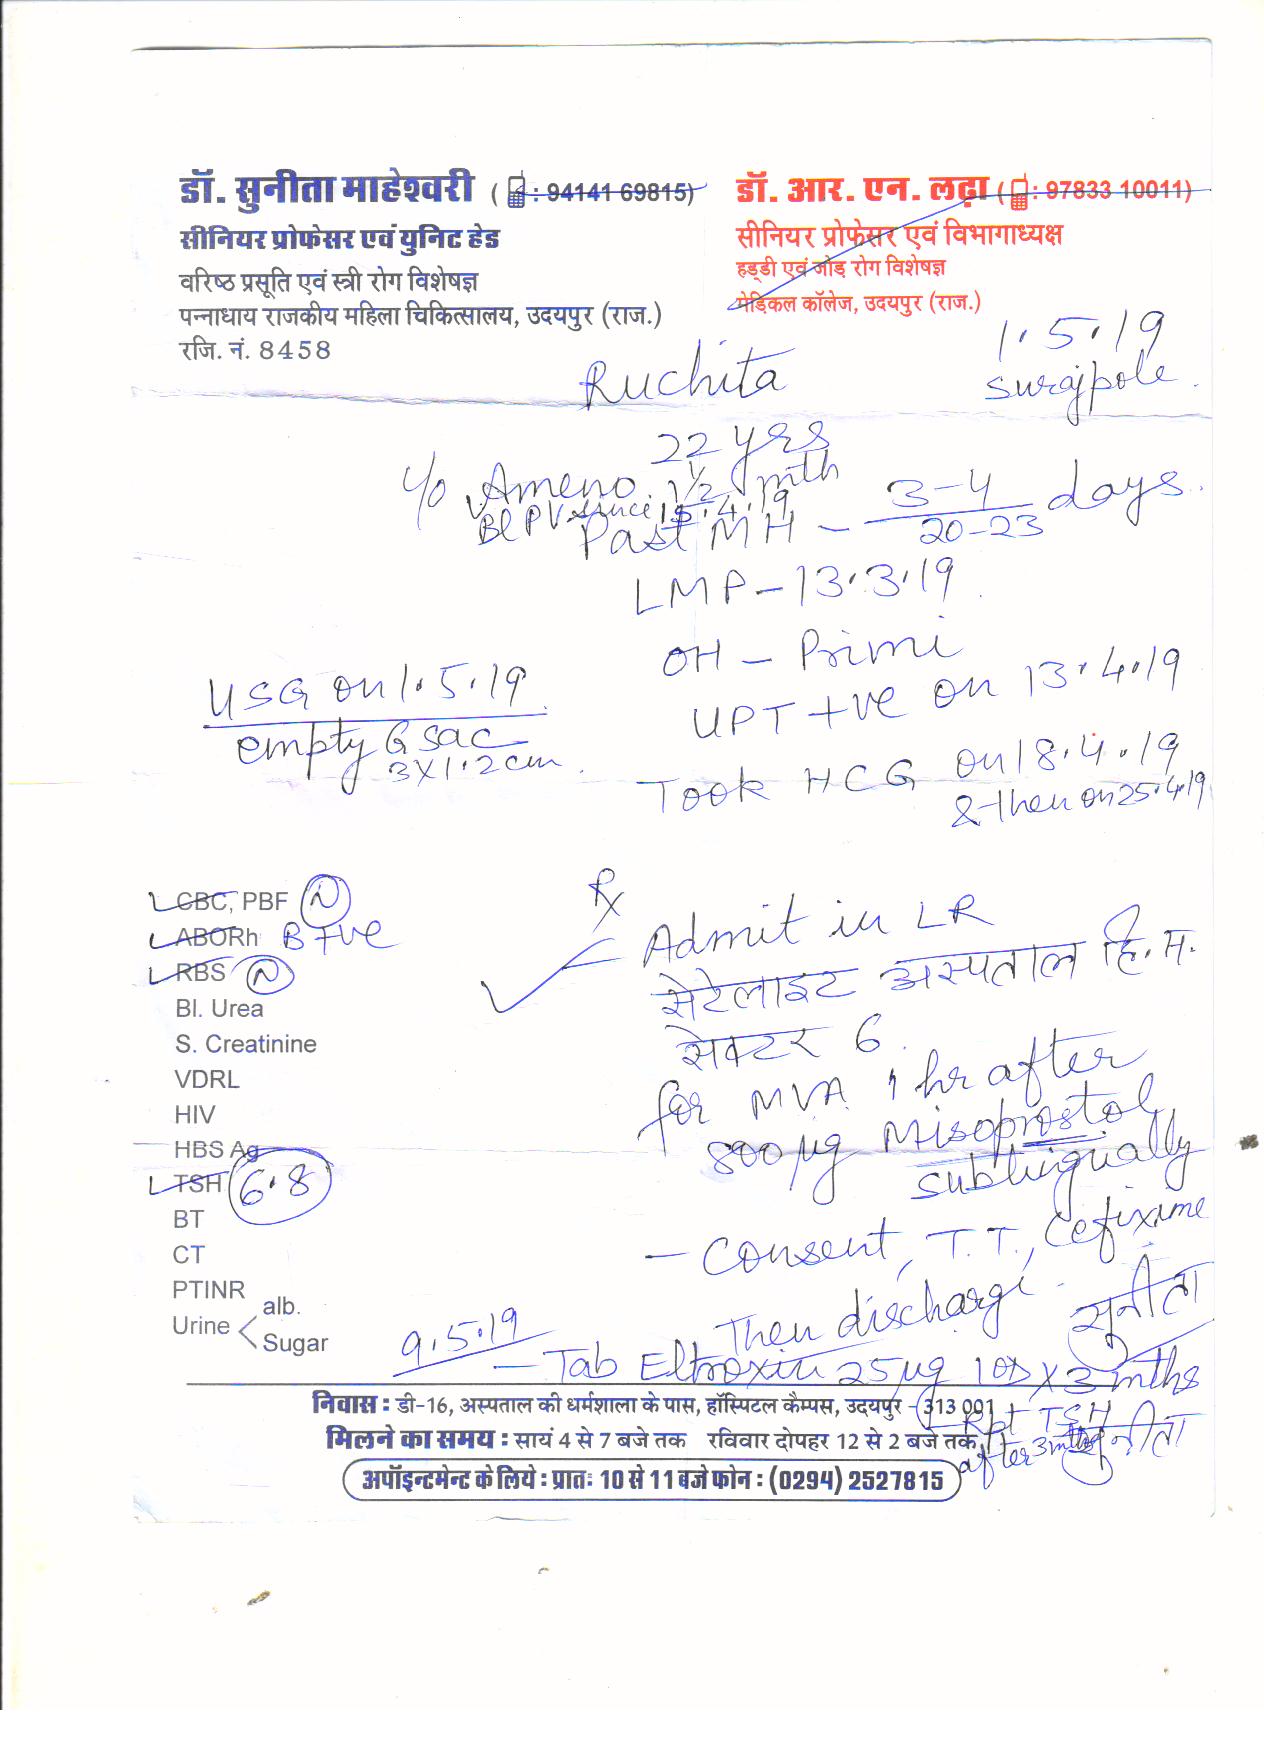 डॉ. सुनीता माहेश्वरी ( : 94141 69815)
सीनियर प्रोफेसर एवं युनिट हेड
वरिष्ठ प्रसूति एवं स्त्री रोग विशेषज्ञ
पन्नाधाय राजकीय महिला चिकित्सालय, उदयपुर (राज.)
रजि. नं. 8458
डॉ. आर. एन. लढ़ा ( : 97833 10011)
सीनियर प्रोफेसर एवं विभागाध्यक्ष
हड्डी एवं जोड़ रोग विशेषज्ञ
मेडिकल कॉलेज, उदयपुर (राज.)
1.5.19
Ruchita
Surajpole
22 yrs
Ameno. 1½ mth
Bl PV since 15.4.19
Past MH - 3-4 days
20-23
LMP - 13.3.19
OH - Primi
UPT +ve on 13.4.19
Took HCG on 18.4.19
& then on 25.4.19
USG on 1.5.19
empty G sac
3X1.2cm
CBC, PBF N
ABORh B +ve
RBS N
Bl. Urea
S. Creatinine
VDRL
HIV
HBS Ag
TSH 6.8
BT
CT
PTINR
Urine < alb.
Sugar
Rx
Admit in LR
सेटेलाइट अस्पताल हि. म.
सेक्टर 6
for MVA 1 hr after
800 µg Misoprostol
sublingually
- Consent, T.T., Cefixime
Then discharge
सुनीता
9.5.19
- Tab Eltroxin 25 µg 1OD X 3 mths
- Rpt TSH
after 3 mths
सुनीता
निवास : डी-16, अस्पताल की धर्मशाला के पास, हॉस्पिटल कैम्पस, उदयपुर - 313 001
मिलने का समय : सायं 4 से 7 बजे तक रविवार दोपहर 12 से 2 बजे तक
अपॉइन्टमेन्ट के लिये : प्रातः 10 से 11 बजे फोन : (0294) 2527815